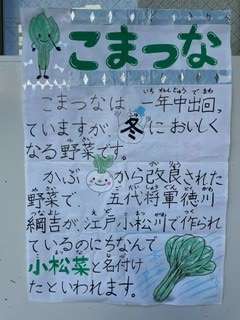 こまつな
こまつなは、一年中出回っ
ていますが、冬においしく
なる野菜です。
かぶから改良された
野菜で、五代将軍徳川
綱吉が、江戸小松川で作られ
ているのにちなんで
小松菜と名付け
たといわれます。